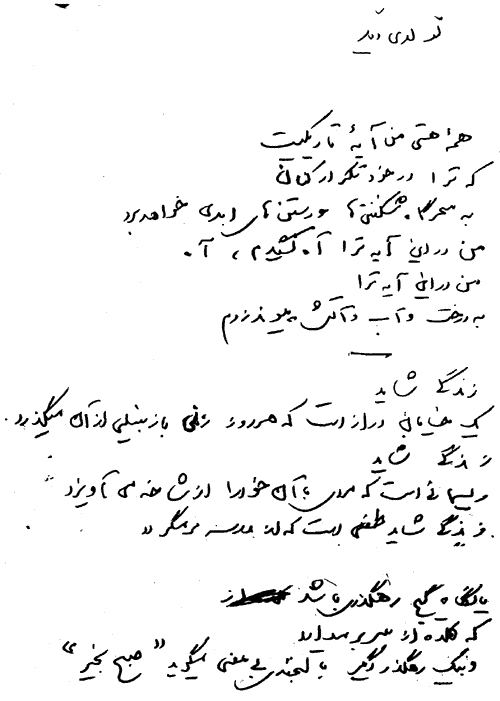 تولدی دیگر
همهٔ هستی من آیهٔ تاریکیست
که ترا در خود تکرار کنان
به سحرگاه شکفتن‌ها و رستن‌های ابدی خواهد برد
من در این آیه ترا آه کشیدم، آه
من در این آیه ترا
به درخت و آب و آتش پیوند زدم
زندگی شاید
یک خیابان درازست که هر روز زنی با زنبیلی از آن میگذرد.
زندگی شاید
ریسمانی است که مردی با آن خود را از شاخه می آویزد
زندگی شاید طفلی است که از مدرسه بر میگردد
یا نگاه گیج رهگذری باشد
که کلاه از سر بر میدارد
و به یک رهگذر دیگر با لبخندی بی معنی میگوید "صبح بخیر"